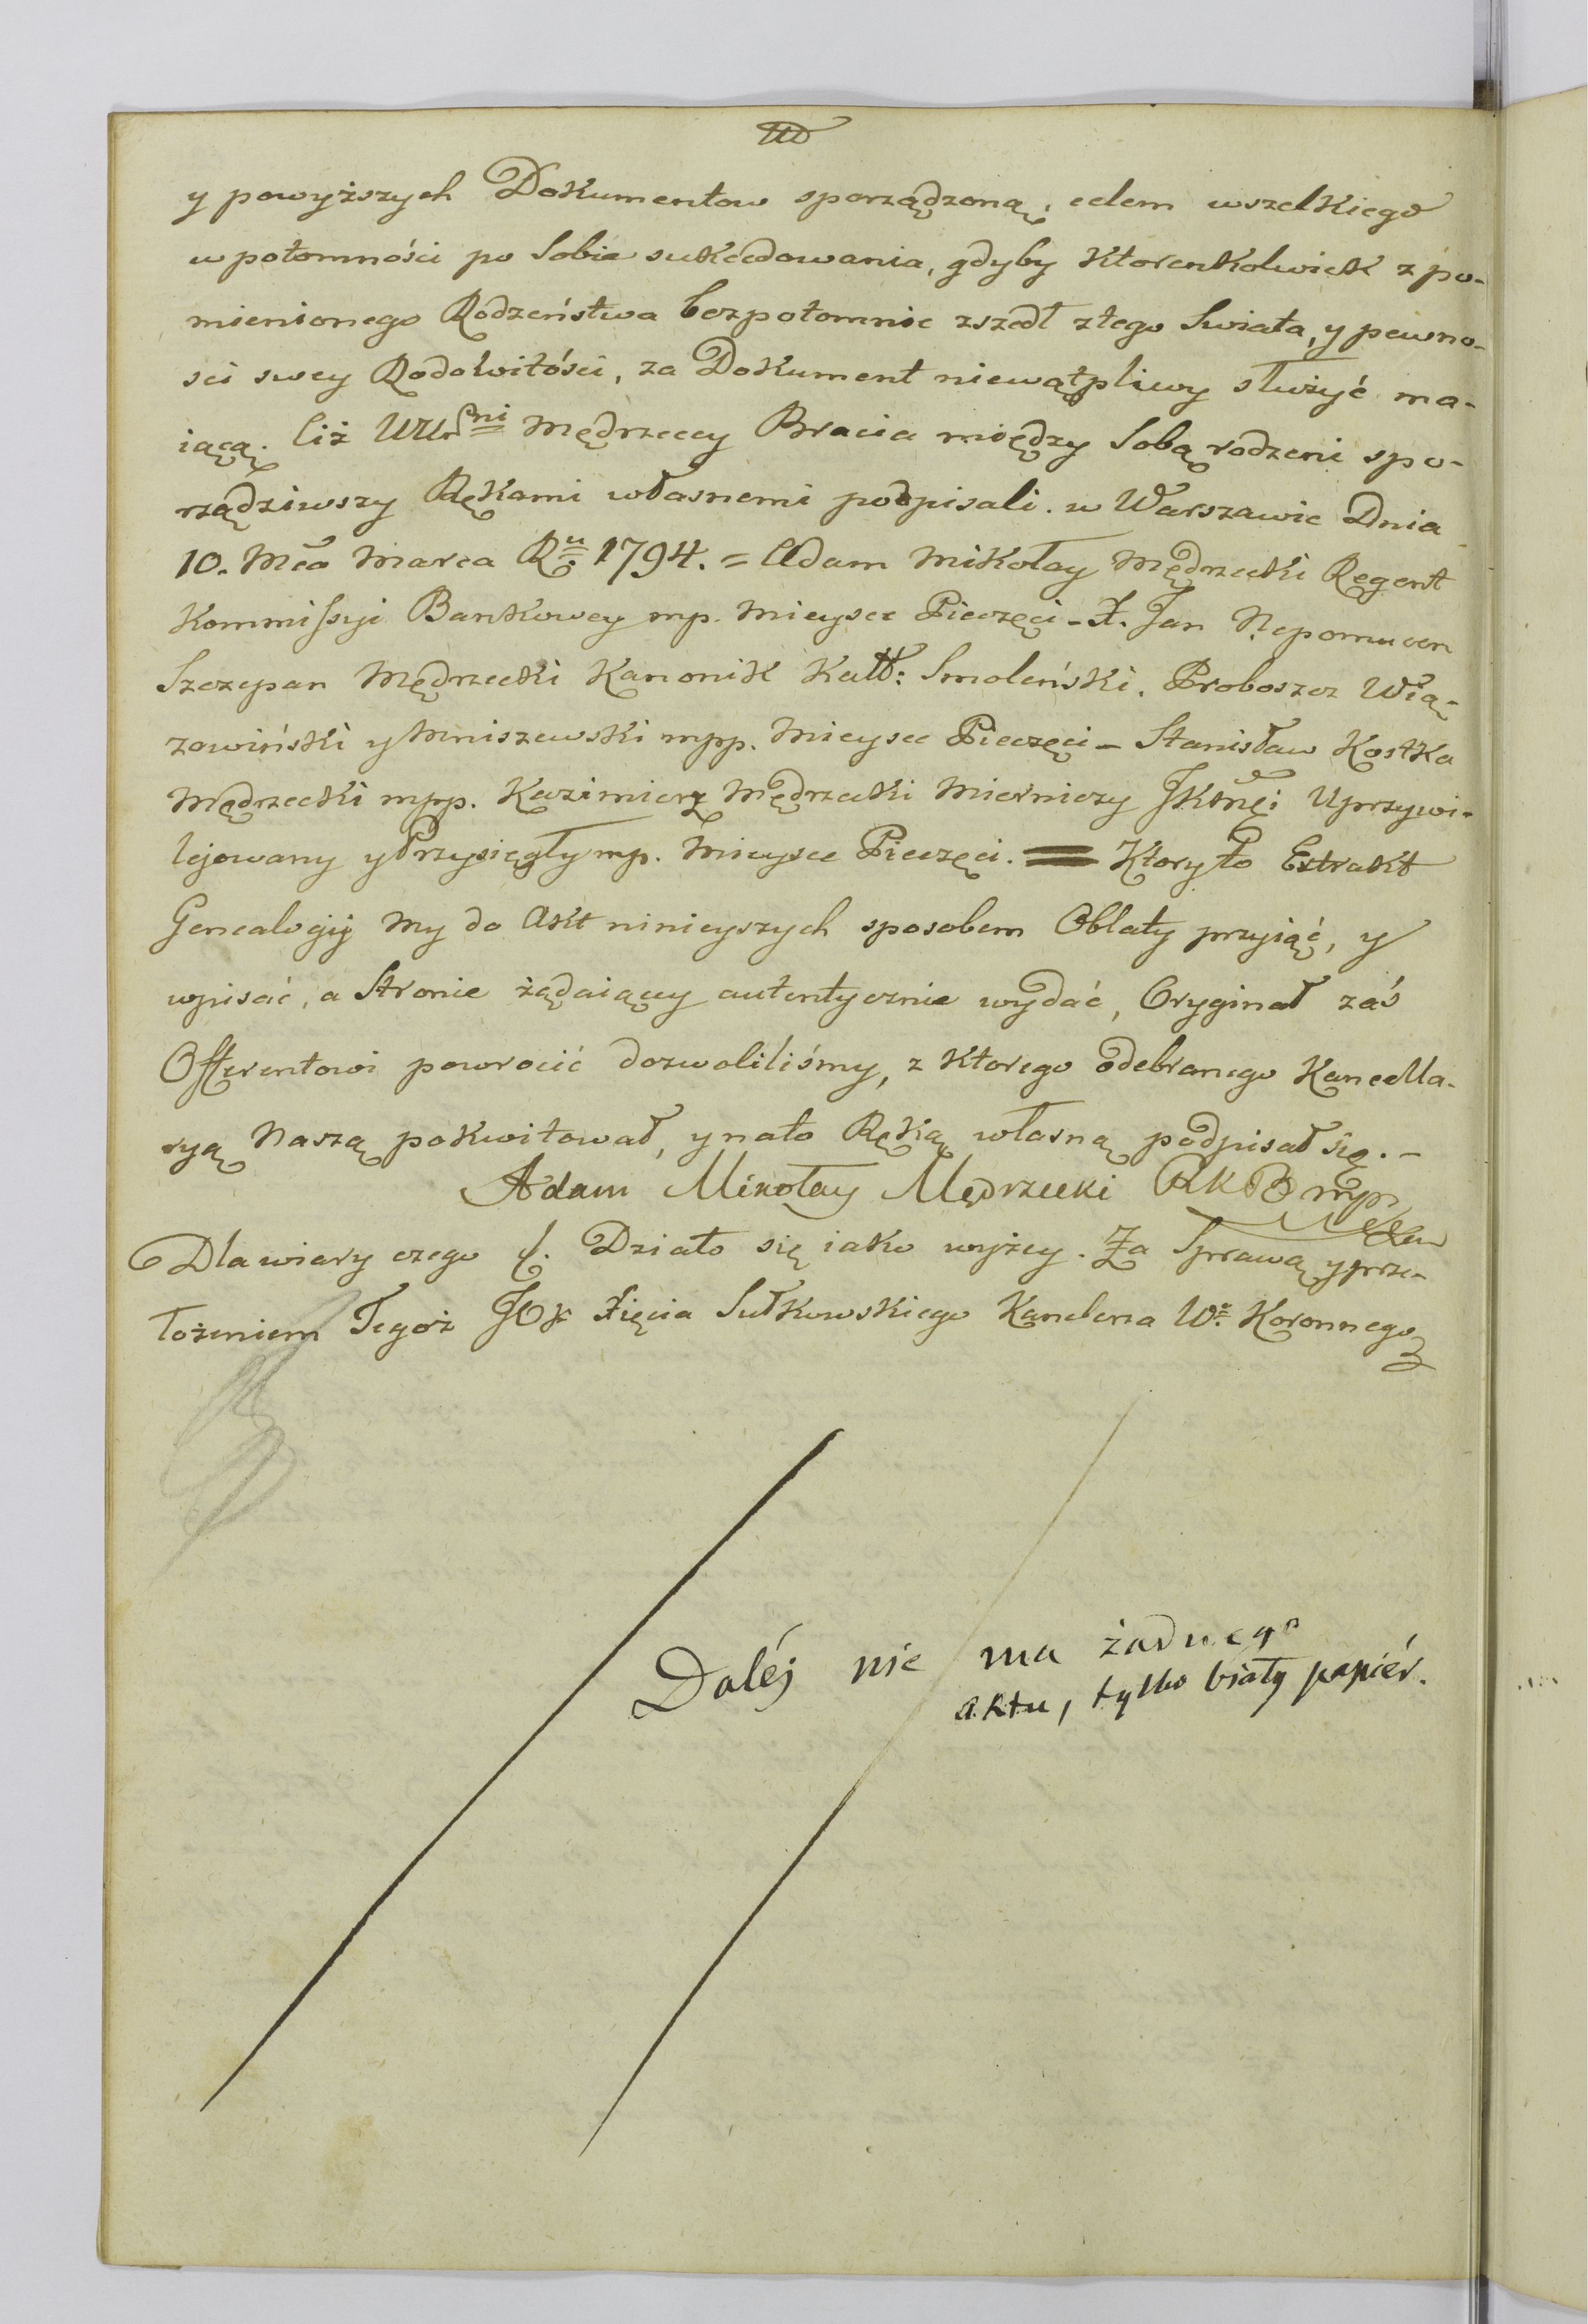 y powyższych Dokumentow sporządzoną, celem wszelkiego
w potomności po Sobie sukcedowania, gdyby ktorenkolwiek z po-
mienionego Rodzeństwa bezpotomnie zszedł z tego Swiata, y pewno-
sci swey Rodowitości, za Dokument niewątpliwy służyć ma-
iącą. Ciż Urni Mędrzeccy Bracia między Sobą rodzeni spo-
rządziwszy Rękami własnemi podpisali. w Warszawie Dnia
10. Mca Marca Ru 1794. = Adam Mikołay Mędrzecki Regent
Kommissyi Bankowey mp. Mieysce Pieczęci - X. Jan Nepomucen
Szczepan Mędrzecki Kanonik Katt: Smoleński, Proboszcz Wią-
zowiński y Mniszewski mpp. Mieysce Pieczęci - Stanisław Kostka
Mędrzecki mpp. Kazimierz Mędrzecki Mierniczy JKMci Uprzywi-
lejowany y Przysięgły mp. Mieysce Pieczęci. = Ktory to Extrakt
Genealogij my do Akt ninieyszych sposobem Oblaty przyiąć, y
wpisać, a Stronie żądaiącey autentycznie wydać, Oryginał zaś
Offerentowi powrocić dozwoliliśmy, z ktorego odebranego Kancella-
ryą Naszą pokwitował, y na to Ręką własną podpisał się. -
Adam Mikołay Mędrzecki RKB mp
Dla wiary czego &. Działo się iako wyżey. Za Sprawą y prze-
łożeniem Tegoż JO Xięcia Sułkowskiego Kanclerza Wo Koronnego
Daléj nie ma żadnego
aktu, tylko biały papiér.